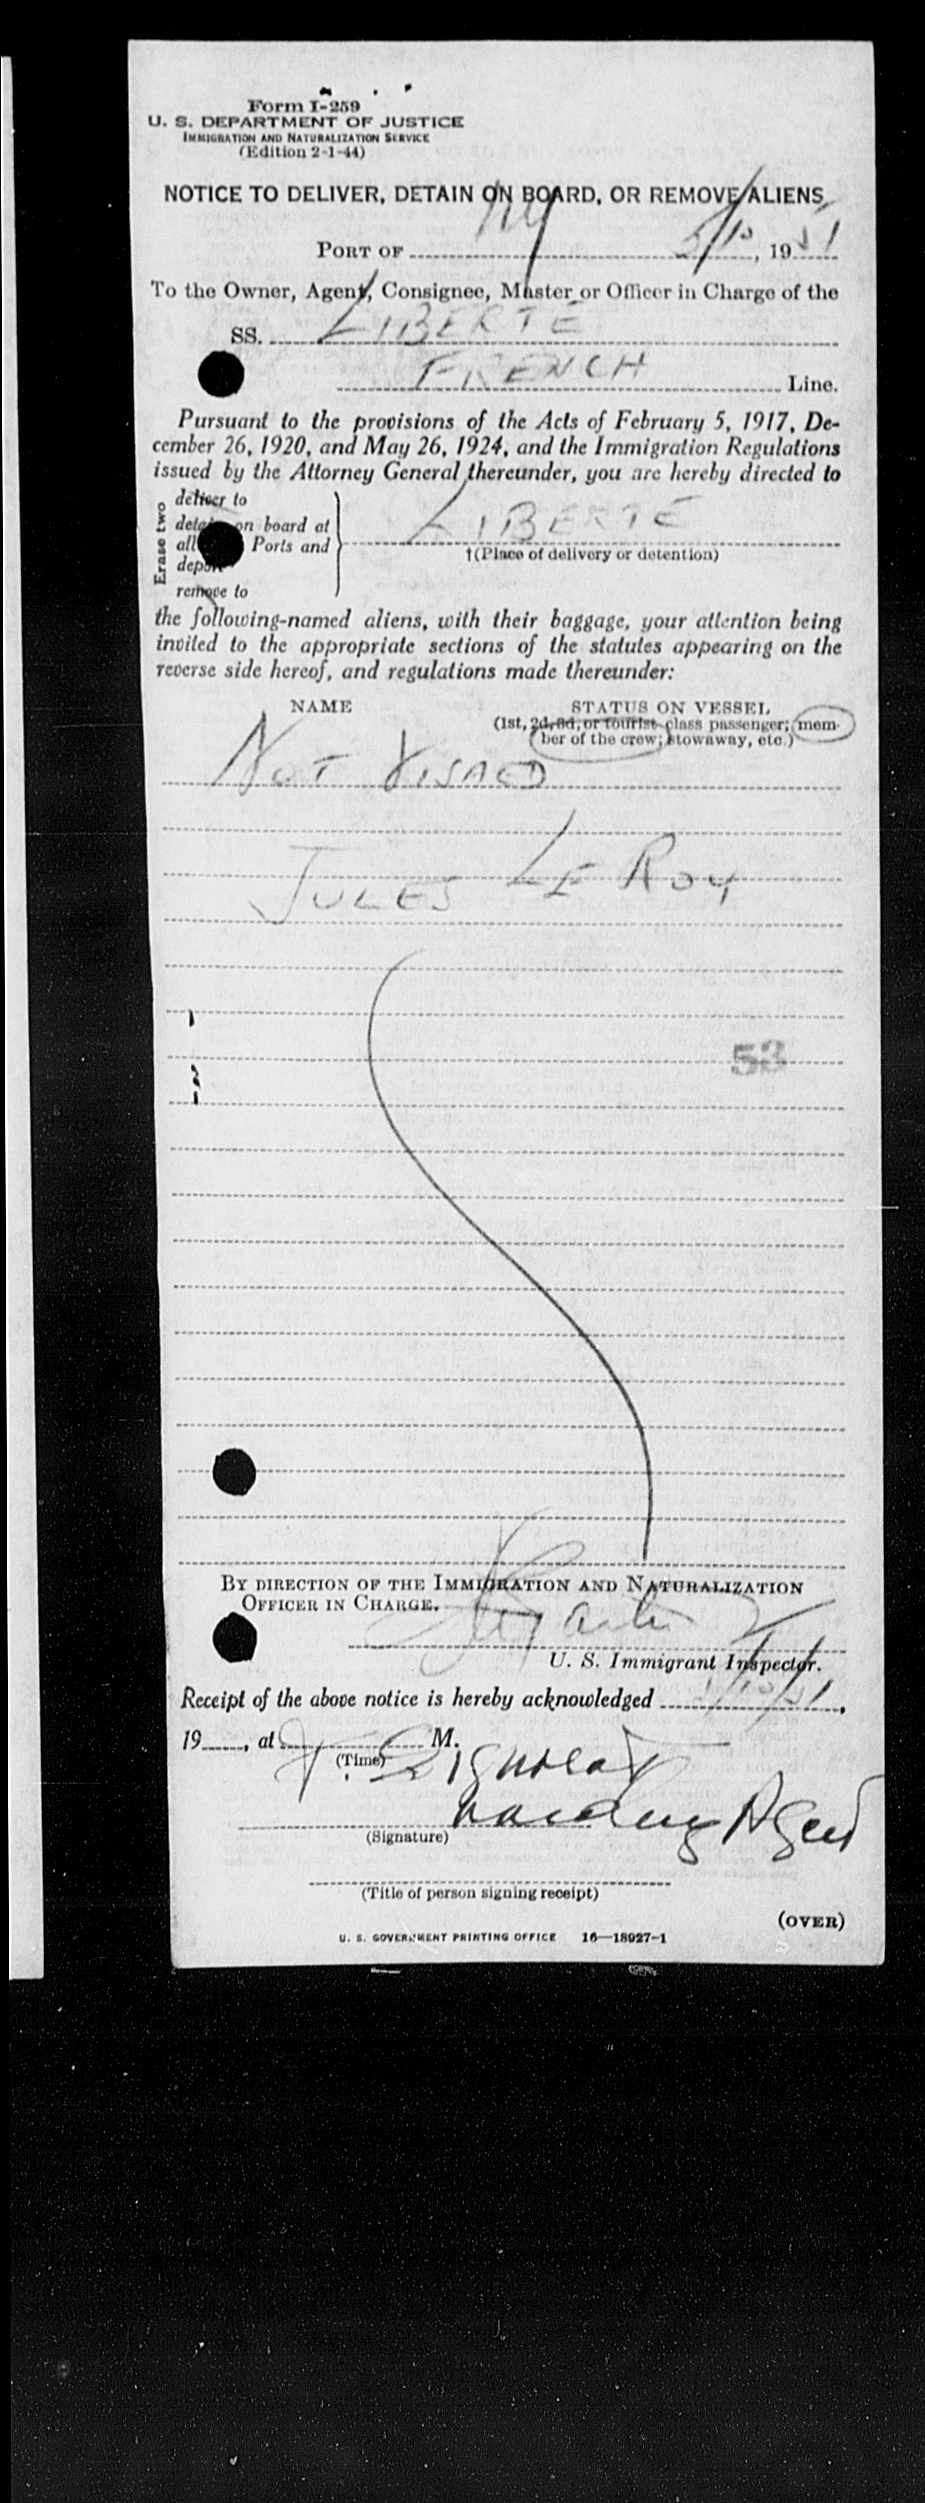 Form I-259
U. S. DEPARTMENT OF JUSTICE
IMMIGRATION AND NATURALIZATION SERVICE
(Edition 2-1-44)
NOTICE TO DELIVER, DETAIN ON BOARD, OR REMOVE ALIENS
PORT OF NY 5/10, 1951
To the Owner, Agent, Consignee, Master or Officer in Charge of the
SS. LIBERTE
FRENCH Line.
Pursuant to the provisions of the Acts of February 5, 1917, De-
cember 26, 1920, and May 26, 1924, and the Immigration Regulations
issued by the Attorney General thereunder, you are hereby directed to
Erase two
deliver to
detain on board at
all Ports and
deport
remove to
LIBERTE
†(Place of delivery or detention)
the following-named aliens, with their baggage, your attention being
invited to the appropriate sections of the statutes appearing on the
reverse side hereof, and regulations made thereunder:
NAME STATUS ON VESSEL
(1st, 2d, 3d, or tourist class passenger; mem-
ber of the crew; stowaway, etc.)
NOT VISAED
JULES LE ROY
53
BY DIRECTION OF THE IMMIGRATION AND NATURALIZATION
OFFICER IN CHARGE.
U. S. Immigrant Inspector.
Receipt of the above notice is hereby acknowledged 5/10/51,
19, at M.
(Time)
Agent
(Signature)
(Title of person signing receipt)
(OVER)
U. S. GOVERNMENT PRINTING OFFICE 16—18927-1